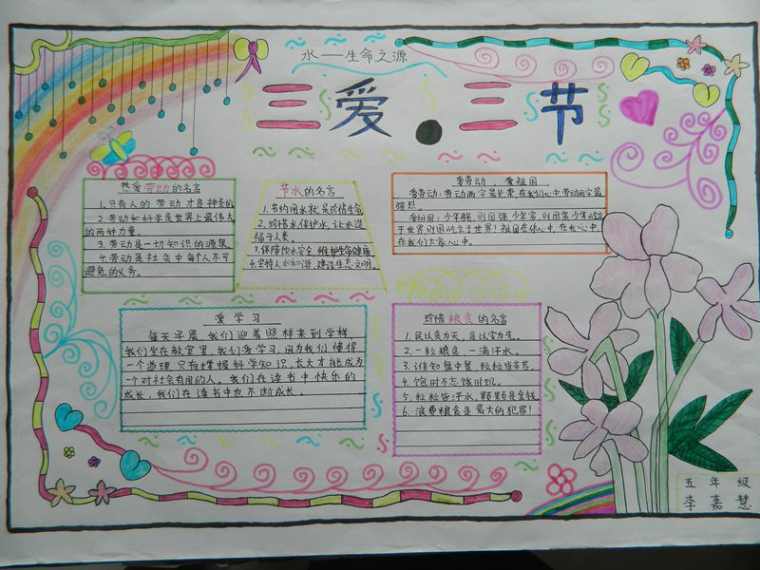 水——生命之源
三爱·三节
热爱劳动的名言
1.只有人的劳动才是神圣的
2.劳动和科学是世界上最伟大
的两种力量。
3.劳动是一切知识的源泉
4.劳动是社会中每个人不可
避免的义务。
节水的名言
1.节约用水就是珍惜生命
2.珍惜水保护水,让水造
福于人类
3.保障饮水安全,维护生命健康
建设生态文明。
爱劳动 爱祖国
在我们大家心中。
爱学习
每天早晨,我们迎着照样来到学校,
我们坐在教室里,我们爱学习,因为我们懂得
一个道理,只有掌握科学知识,长大才能成为
一个对社会有用的人。我们在读书中快乐的
成长,我们在读书中也不断成长。
珍惜粮食的名言
1.民以食为天,食以安为先。
2.一粒粮食,一滴汗水。
3.谁知盘中餐,粒粒皆辛苦。
4.饱时不忘饿时饥。
5.粒粒皆汗水,颗颗是金钱
6.浪费粮食是最大的犯罪!
五年级
李嘉慧